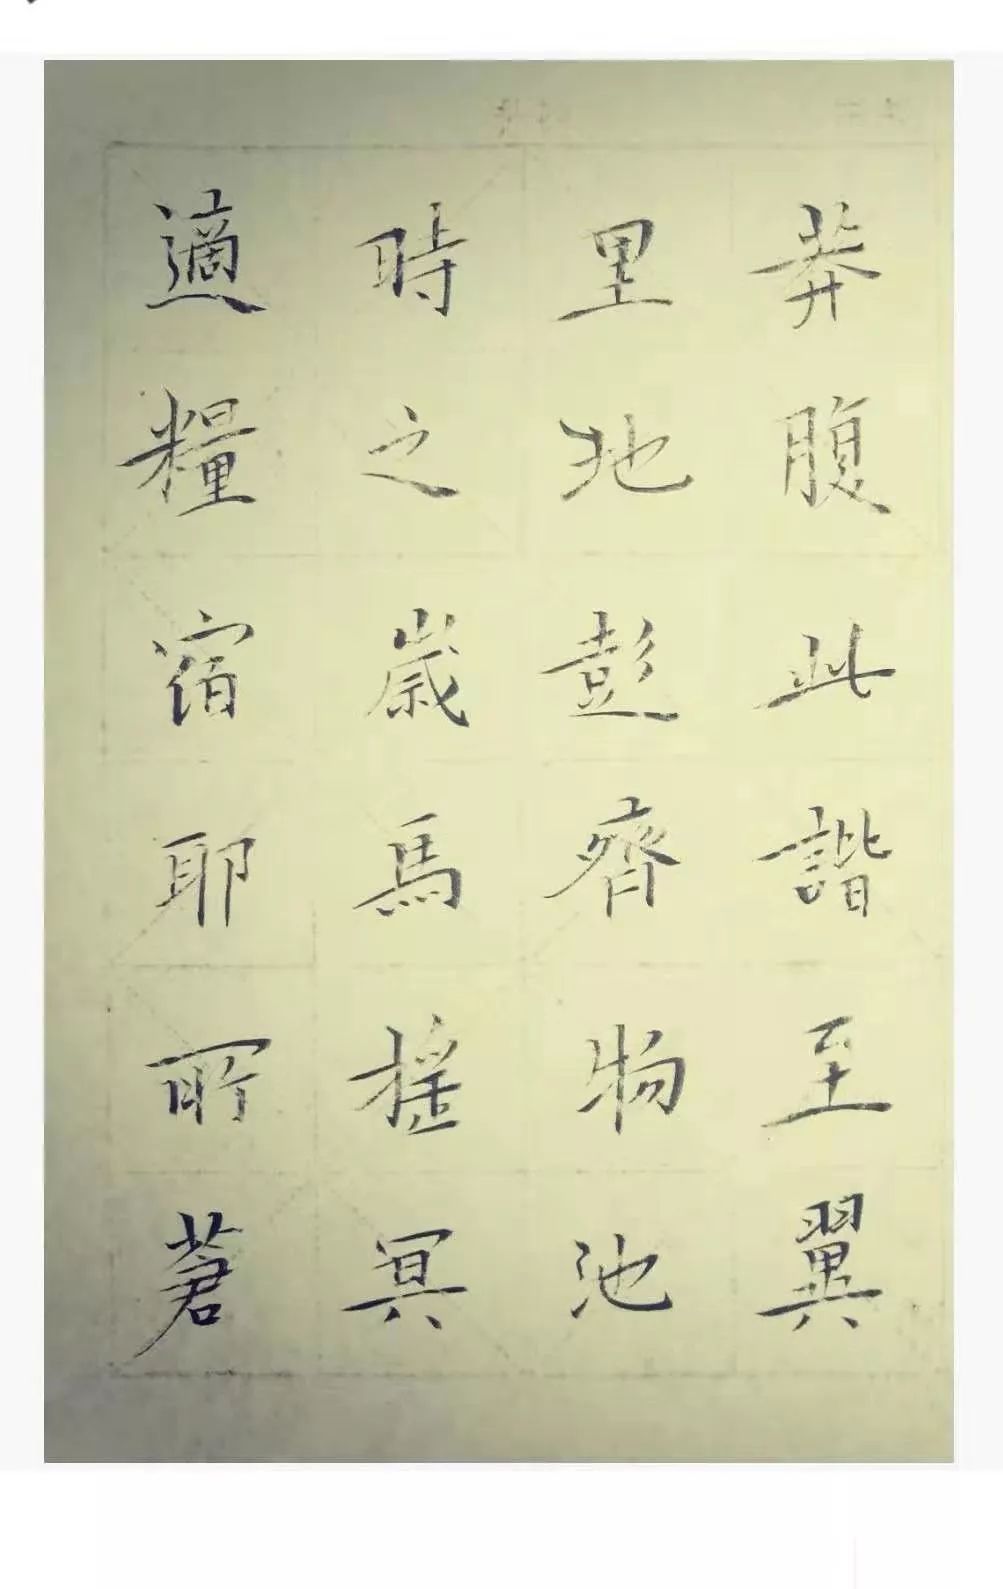 莽腹此諧至翼
里地彭齊物池
時之歲馬搖冥
適糧宿耶所蒼